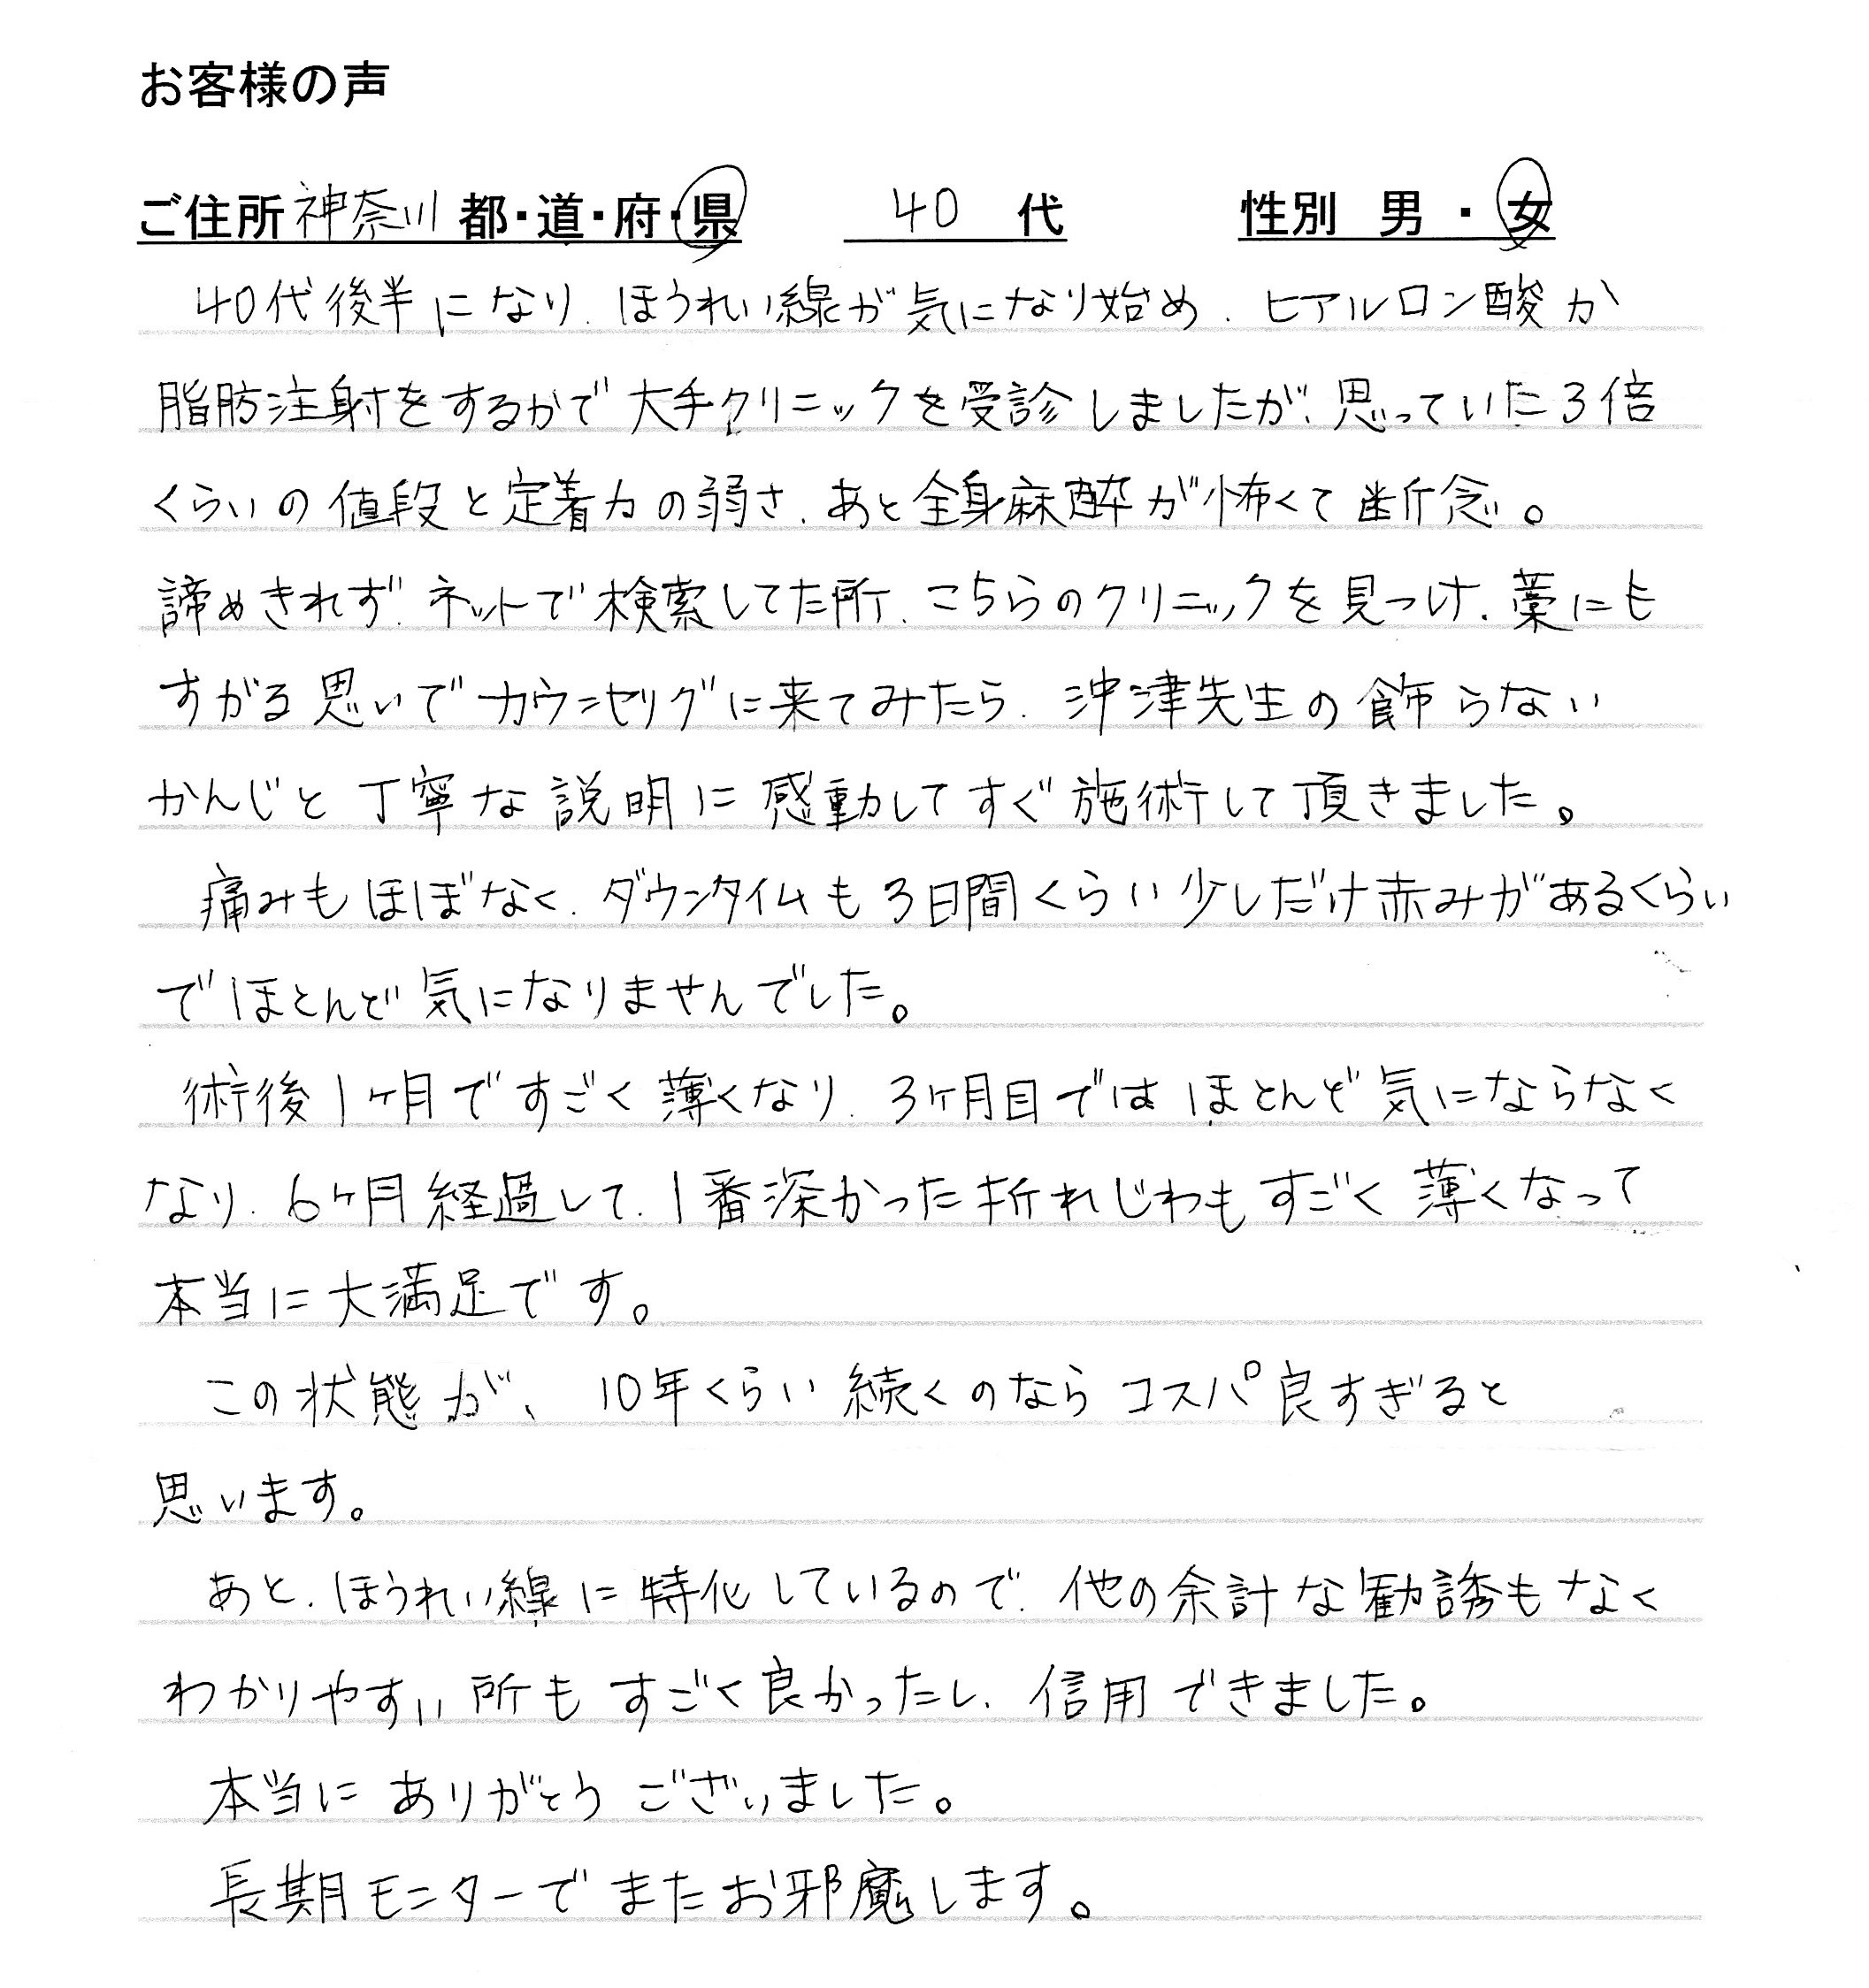 お客様の声
ご住所 神奈川 都・道・府・県 40 代 性別 男 ・ 女
40代後半になり、ほうれい線が気になり始め、ヒアルロン酸か
脂肪注射をするかで大手クリニックを受診しましたが、思っていた3倍
くらいの値段と定着力の弱さ、あと全身麻酔が怖くて断念。
諦めきれず、ネットで検索してた所、こちらのクリニックを見つけ、藁にも
すがる思いでカウンセリグに来てみたら、沖津先生の飾らない
かんじと丁寧な説明に感動してすぐ施術して頂きました。
痛みもほぼなく、ダウンタイムも3日間くらい少しだけ赤みがあるくらい
でほとんど気になりませんでした。
術後1ヶ月ですごく薄くなり、3ヶ月目ではほとんど気にならなく
なり、6ヶ月経過して、1番深かった折れじわもすごく薄くなって
本当に大満足です。
この状態が、10年くらい続くのならコスパ良すぎると
思います。
あと、ほうれい線に特化しているので、他の余計な勧誘もなく
わかりやすい所もすごく良かったし、信用できました。
本当にありがとうございました。
長期モニターでまたお邪魔します。